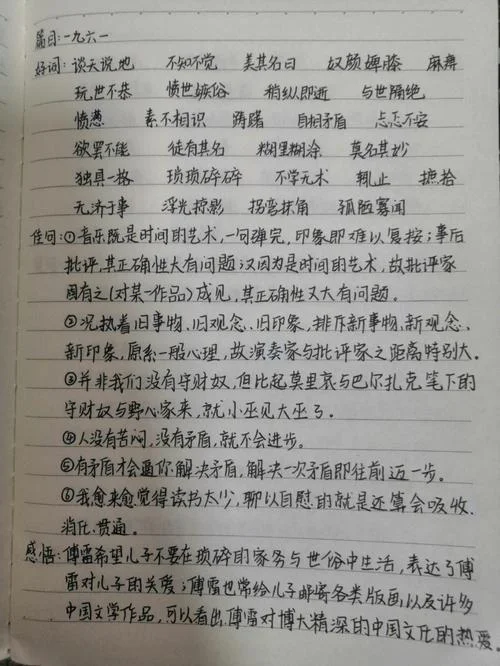 篇目:一九六一
好词:谈天说地 不知不觉 美其名曰 奴颜婢膝 麻痹
玩世不恭 愤世嫉俗 稍纵即逝 与世隔绝
愤懑 素不相识 踌躇 自相矛盾 忐忑不安
欲罢不能 徒有其名 糊里糊涂 莫名其妙
独具一格 琐琐碎碎 不学无术 辄止 摭拾
无济于事 浮光掠影 拐弯抹角 孤陋寡闻
佳句:①音乐既是时间的艺术,一句弹完,印象即难以复按;事后
批评,其正确性大有问题;又因为是时间的艺术,故批评家
固有之(对某一作品)成见,其正确性又大有问题。
②况执着旧事物、旧观念、旧印象,排斥新事物、新观念、
新印象,原系一般心理,故演奏家与批评家之距离特别大。
③并非我们没有守财奴,但比起莫里哀与巴尔扎克笔下的
守财奴与野心家来,就小巫见大巫了。
④人没有苦闷,没有矛盾,就不会进步。
⑤有矛盾才会逼你解决矛盾,解决一次矛盾即往前迈一步。
⑥我愈来愈觉得读书太少,聊以自慰的就是还算会吸收、
消化、贯通。
感悟:傅雷希望儿子不要在琐碎的家务与世俗中生活,表达了傅
雷对儿子的关爱;傅雷也常给儿子邮寄各类版画以及许多
中国文学作品,可以看出傅雷对博大精深的中国文化的热爱